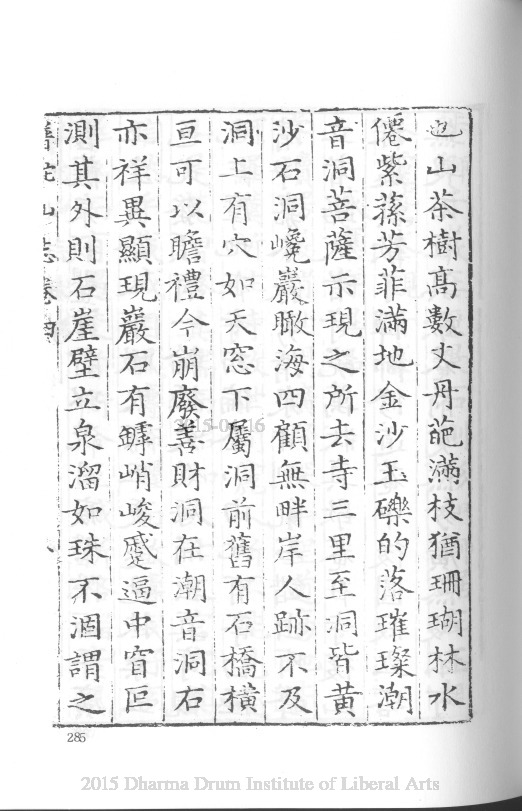 也山茶樹高數丈丹葩滿枝猶珊瑚林水
僊紫蓀芳菲滿地金沙玉礫的落璀璨潮
音洞菩薩示現之所去寺三里至洞皆黄
沙石洞巉巖瞰海四顧無畔岸人跡不及
洞上有穴如天窓下屬洞前舊有石橋橫
亘可以瞻禮今崩廢善財洞在潮音洞石
亦祥異顯現巖石有罅峭峻蹙逼中窅叵
測其外則石崖壁立泉溜如珠不涸謂之
普陀山志卷四
八
285
2015 Dharma Drum Institute of Liberal Arts